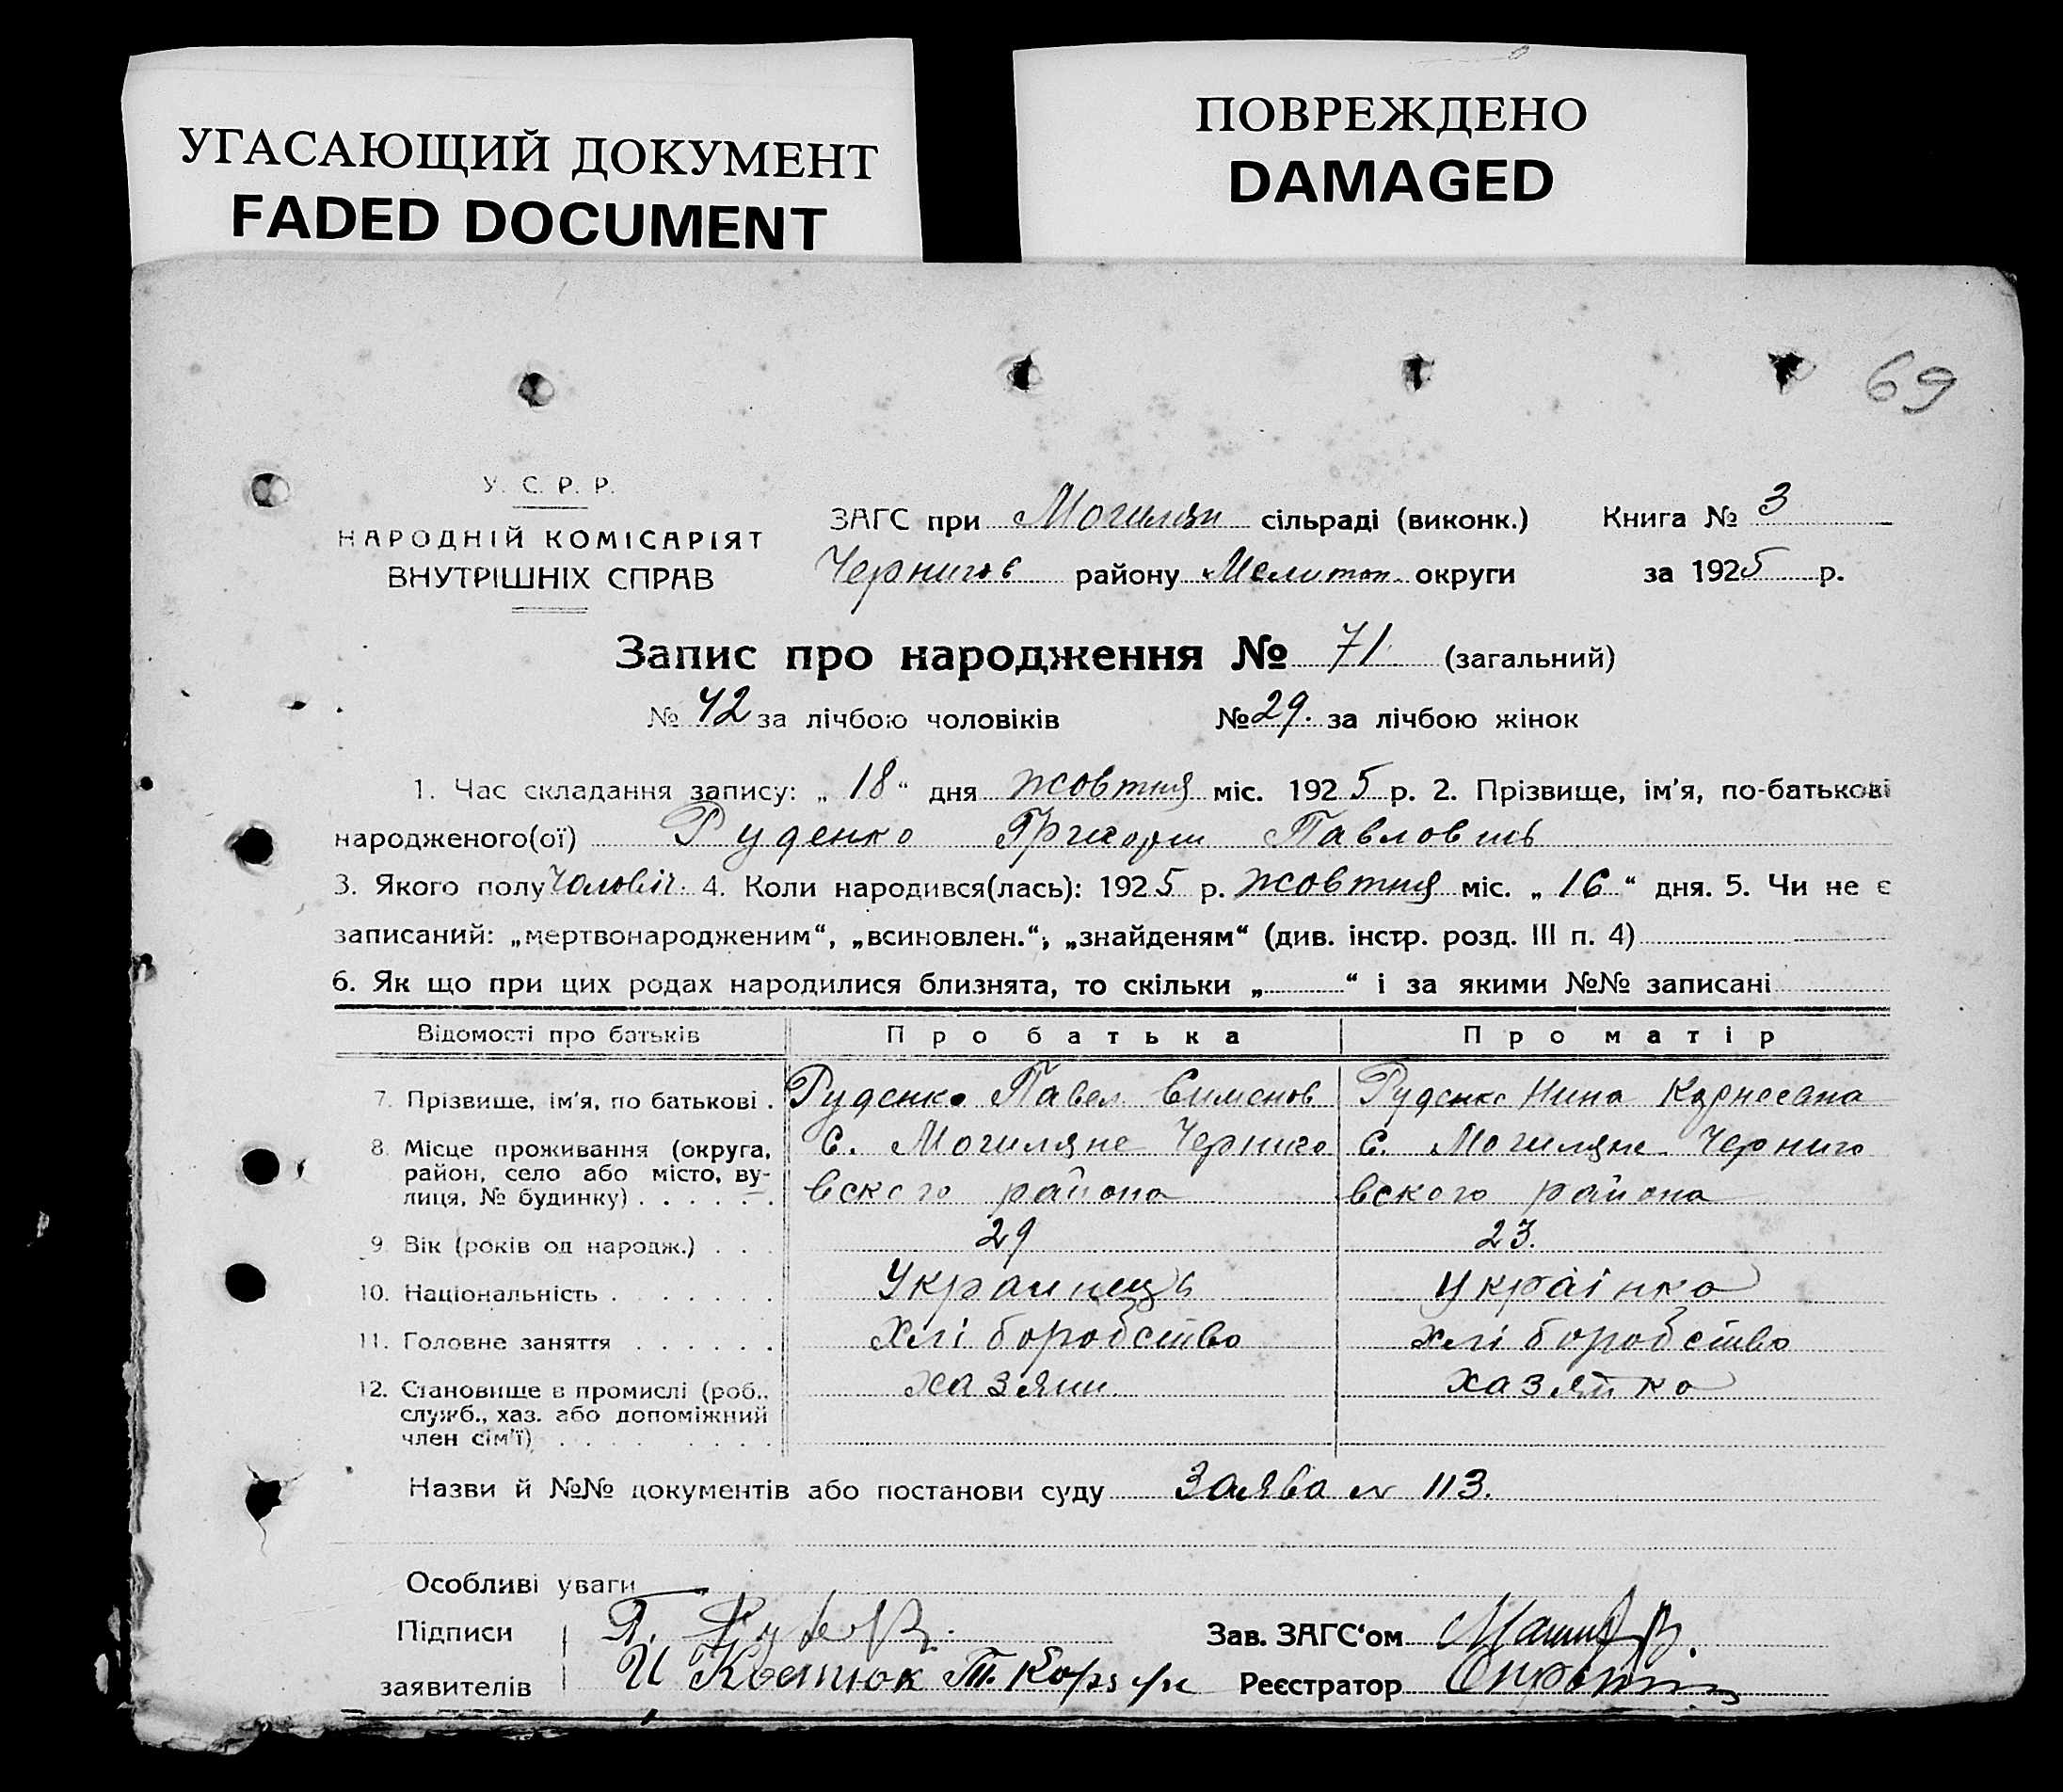 УГАСАЮЩИЙ ДОКУМЕНТ
FADED DOCUMENT
ПОВРЕЖДЕНО
DAMAGED
69
У. С. Р. Р.
НАРОДНІЙ КОМІСАРІЯТ
ВНУТРІШНІХ СПРАВ
ЗАГС при Могилян сільраді (виконк.) Книга № 3
Чернигов району Мелитоп. округи за 1925 р.
Запис про народження № 71 (загальний)
№ 42 за лічбою чоловіків № 29. за лічбою жінок
1. Час складання запису: „ 18 “ дня жовтня міс. 1925 р. 2. Прізвище, ім’я, по-батькові
народженого(ої) Руденко Григори Павлович
3. Якого полу чоловіч. 4. Коли народився(лась): 1925 р. жовтня міс. „ 16 “ дня. 5. Чи не є
записаний: „мертвонародженим“, „всиновлен.“, „знайденям“ (див. інстр. розд. III п. 4)
6. Як що при цих родах народилися близнята, то скільки „ “ і за якими №№ записані
Відомості про батьків Про батька Про матір
7. Прізвище, ім’я, по батькові . Руденко Павел Сименов Руденко Нина Карнеевна
8. Місце проживання (округа, С. Могиляне Черниго С. Могиляне Черниго
район, село або місто, ву-
лиця, № будинку) . . . . . . вского района вского района
9. Вік (років од народж.) . . . 29 23.
10. Національність . . . . . . . Украинець Українка
11. Головне заняття . . . . . . Хліборобство хліборобство
12. Становище в промислі (роб., хазяин хазяйка
служб., хаз. або допоміжний
член сім’ї) . . . . . . . . .
Назви й №№ документів або постанови суду Заява № 113.
Особливі уваги
Підписи Зав. ЗАГС‘ом
заявителів И Костюк Т. Реєстратор